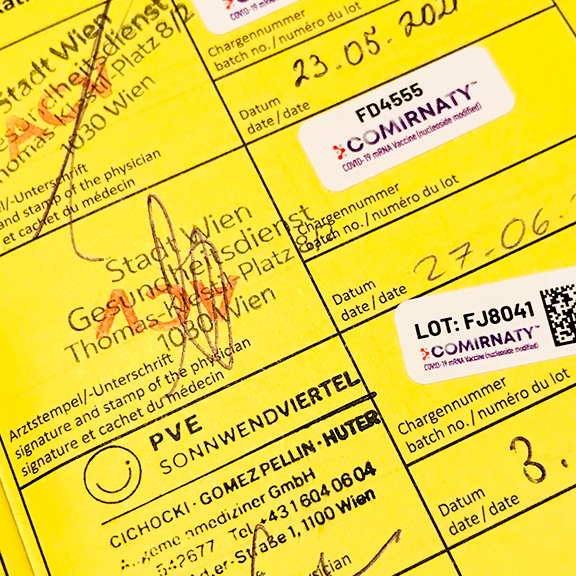 Stadt Wien
Gesundheitsdienst
Thomas-Klestil-Platz 8/2
1030 Wien
/-Unterschrift
and stamp of the physician
et cachet du médecin
Chargennummer
batch no. / numéro du lot
23.05.2021
Datum
date / date
FD4555
COMIRNATY™
COVID-19 mRNA Vaccine (nucleoside modified)
Stadt Wien
Gesundheitsdienst
Thomas-Klestil-Platz 8/2
1030 Wien
Arztstempel/-Unterschrift
signature and stamp of the physician
signature et cachet du médecin
Chargennummer
batch no. / numéro du lot
27.06.
Datum
date / date
LOT: FJ8041
COMIRNATY™
COVID-19 mRNA Vaccine (nucleoside modified)
PVE
SONNWENDVIERTEL
CICHOCKI · GOMEZ PELLIN · HUTER
gemeinmediziner GmbH
Tel +43 1 604 06 04
er-Straße 1, 1100 Wien
physician
Chargennummer
batch no. / numéro du lot
3.
Datum
date / date